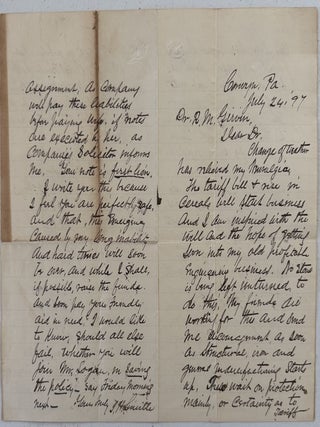 Cowan, Pa.
July 24. '97
Dr. R. M. Girvin,
Dear Dr.
Change of weather
has relieved my Neuralgia.
The tariff bill & rise in
Cereals will start business
And I am inspired with the
will And the hope of getting
soon into my old profitable
Engineering business. No stone
is being left unturned, to
do this, My friends are
working for this And send
me encouragement as soon
as Structural, iron and
general undertakings start
up, They wait on protection,
mainly, or certainty as to
tariff
Assignment, As Company
will pay their liabilities
before paying wife, if notes
are executed by her, as
Company's Solicitor informs
me. Your note is first lien.
I write you this because
I feel you are perfectly safe,
And that, the
Caused by my long inability
And hard times will soon
be over, And while I shall,
if possible raise the funds.
And soon pay your friendly
aid in need, I would like
to know, should all else
fail, whether you will
join Mr. Logan, in saving
the policy - Say Friday morning
next - Yours truly